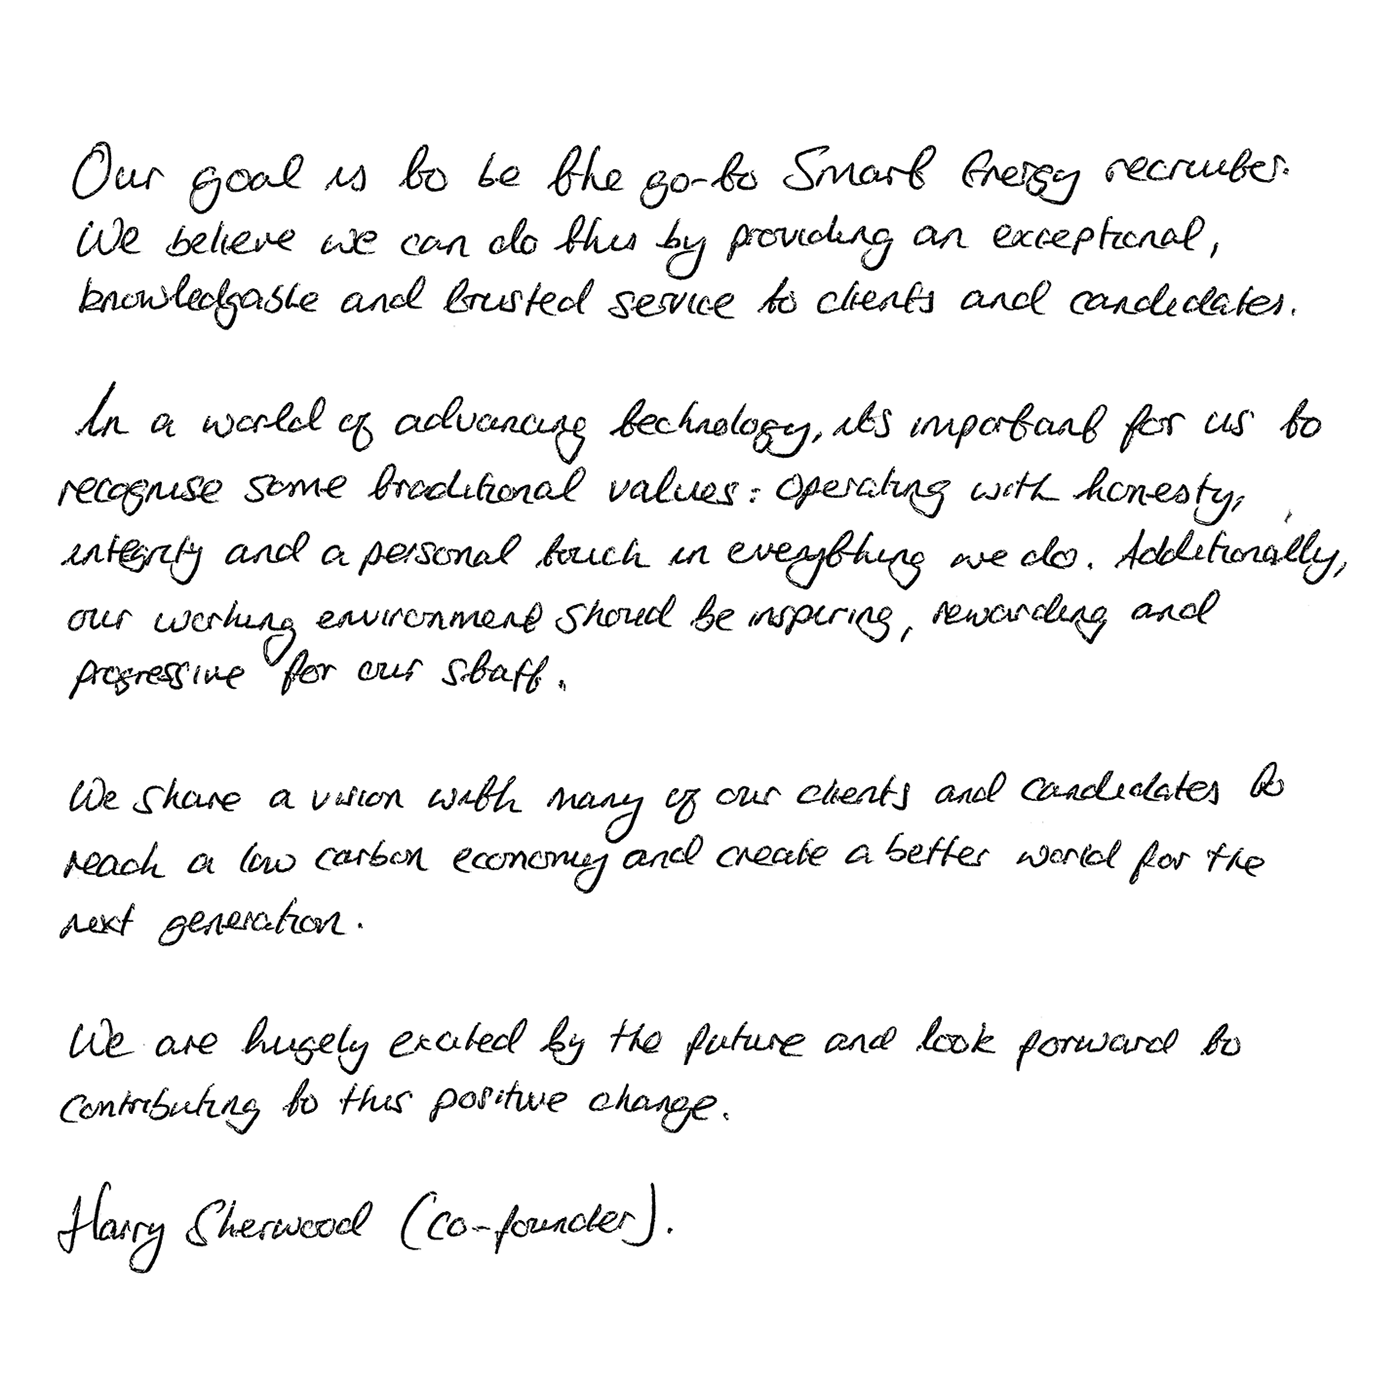 Our goal is to be the go-to Smart Energy recruiter.
We believe we can do this by providing an exceptional,
knowledgable and trusted service to clients and candidates.
In a world of advancing technology, its important for us to
recognise some traditional values: operating with honesty,
integrity and a personal touch in everything we do. Additionally,
our working environment should be inspiring, rewarding and
progressive for our staff.
We share a vision with many of our clients and candidates to
reach a low carbon economy and create a better world for the
next generation.
We are hugely excited by the future and look forward to
contributing to this positive change.
Harry Sherwood (co-founder).